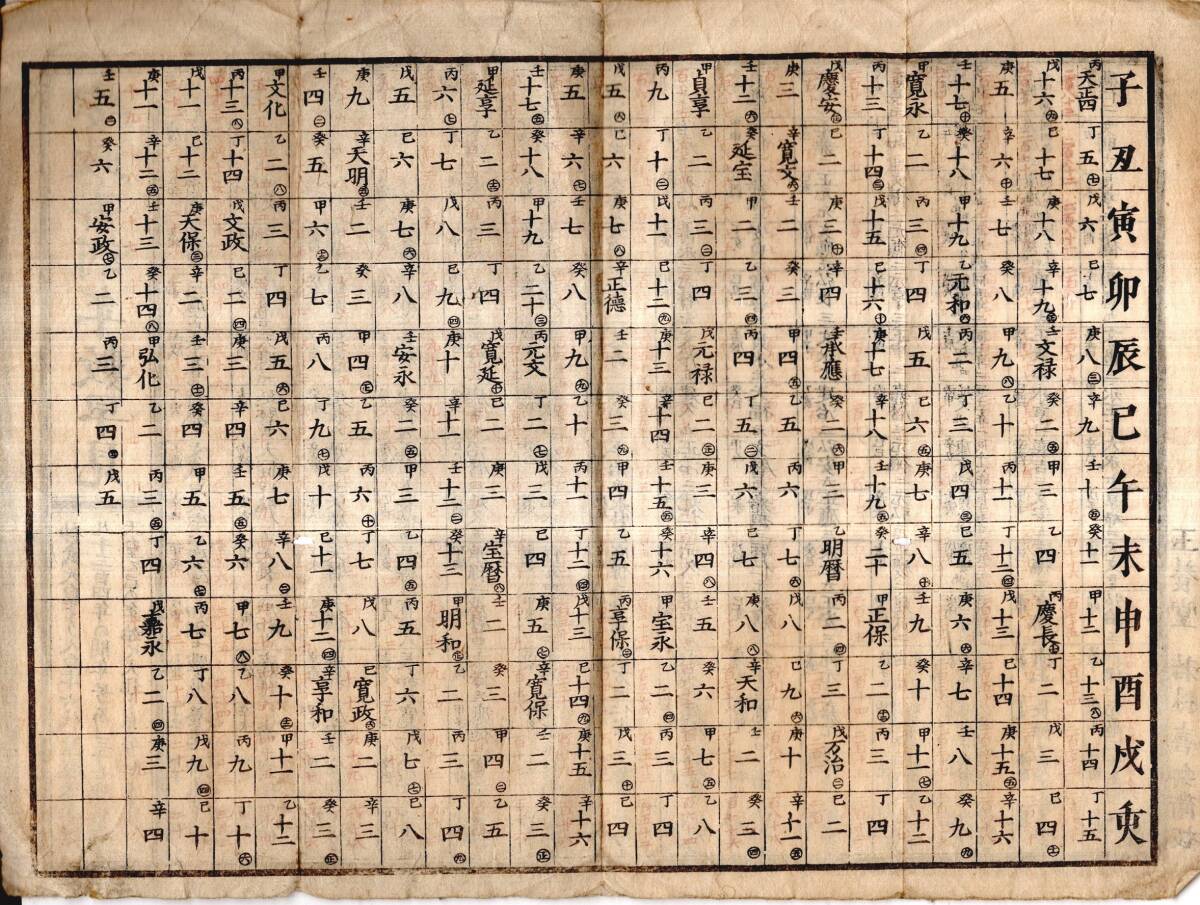 子 丑 寅 卯 辰 巳 午 未 申 酉 戌 亥
丙 天正四 丁 五㊆ 戊 六 己 七 庚 八㊂ 辛 九 壬 十 癸 十一 甲 十二 乙 十三 丙 十四 丁 十五
戊 十六 己 十七 庚 十八 辛 十九 壬 文禄 癸 二 甲 三 乙 四 丙 慶長 丁 二 戊 三 己 四
庚 五 辛 六 壬 七 癸 八 甲 九㊇ 乙 十 丙 十一 丁 十二㊃ 戊 十三 己 十四 庚 十五 辛 十六
壬 十七㊉ 癸 十八 甲 十九 乙 元和㊅ 丙 二 丁 三 戊 四㊂ 己 五 庚 六 辛 七 壬 八 癸 九
甲 寛永 乙 二 丙 三㊃ 丁 四 戊 五 己 六 庚 七 辛 八㊉ 壬 九 癸 十 甲 十一㊆ 乙 十二
丙 十三 丁 十四 戊 十五 己 十六 庚 十七 辛 十八 壬 十九 癸 二十 甲 正保 乙 二 丙 三 丁 四
戊 慶安 己 二 庚 三㊉ 辛 四 壬 承應 癸 二㊅ 甲 三 乙 明暦 丙 二㊃ 丁 三 戊 万治 己 二
庚 三 辛 寛文 壬 二 癸 三 甲 四㊄ 乙 五 丙 六 丁 七 戊 八 己 九 庚 十 辛 十一
壬 十二㊅ 癸 延宝 甲 二 乙 三㊃ 丙 四 丁 五 戊 六 己 七 庚 八㊇ 辛 天和 壬 二 癸 三
甲 貞享 乙 二 丙 三㊂ 丁 四 戊 元禄 己 二 庚 三 辛 四㊇ 壬 五 癸 六 甲 七㊄ 乙 八
丙 九 丁 十㊁ 戊 十一 己 十二㊈ 庚 十三 辛 十四 壬 十五 癸 十六 甲 宝永 乙 二㊃ 丙 三 丁 四
戊 五 己 六 庚 七㊇ 辛 正德 壬 二 癸 三 甲 四 乙 五 丙 享保 丁 二 戊 三㊉ 己 四
庚 五 辛 六㊆ 壬 七 癸 八 甲 九 乙 十 丙 十一 丁 十二 戊 十三 己 十四 庚 十五 辛 十六
壬 十七 癸 十八 甲 十九 乙 二十㊂ 丙 元文 丁 二 戊 三 己 四 庚 五㊆ 辛 寛保 壬 二 癸 三
甲 延享 乙 二 丙 三 丁 四 戊 寛延㊉ 己 二 庚 三 辛 宝暦 壬 二 癸 三 甲 四㊁ 乙 五
丙 六 丁 七 戊 八 己 九㊃ 庚 十 辛 十一 壬 十二 癸 十三 甲 明和 乙 二 丙 三 丁 四
戊 五 己 六 庚 七㊅ 辛 八 壬 安永 癸 二 甲 三 乙 四 丙 五 丁 六 戊 七㊆ 己 八
庚 九 辛 天明 壬 二 癸 三 甲 四 乙 五 丙 六㊉ 丁 七 戊 八 己 寛政 庚 二 辛 三
壬 四㊁ 癸 五 甲 六 乙 七 丙 八 丁 九㊆ 戊 十 己 十一 庚 十二㊃ 辛 享和 壬 二 癸 三
甲 文化 乙 二㊇ 丙 三 丁 四 戊 五㊅ 己 六 庚 七 辛 八 壬 九 癸 十 甲 十一 乙 十二
丙 十三㊇ 丁 十四 戊 文政 己 二㊃ 庚 三 辛 四 壬 五 癸 六 甲 七㊇ 乙 八 丙 九 丁 十㊅
戊 十一 己 十二 庚 天保㊂ 辛 二 壬 三 癸 四 甲 五 乙 六㊆ 丙 七 丁 八 戊 九㊃ 己 十
庚 十一 辛 十二 壬 十三 癸 十四 甲 弘化 乙 二 丙 三㊄ 丁 四 戊 嘉永 己 二㊃ 庚 三 辛 四
壬 五 癸 六 甲 安政㊆ 乙 二 丙 三 丁 四 戊 五